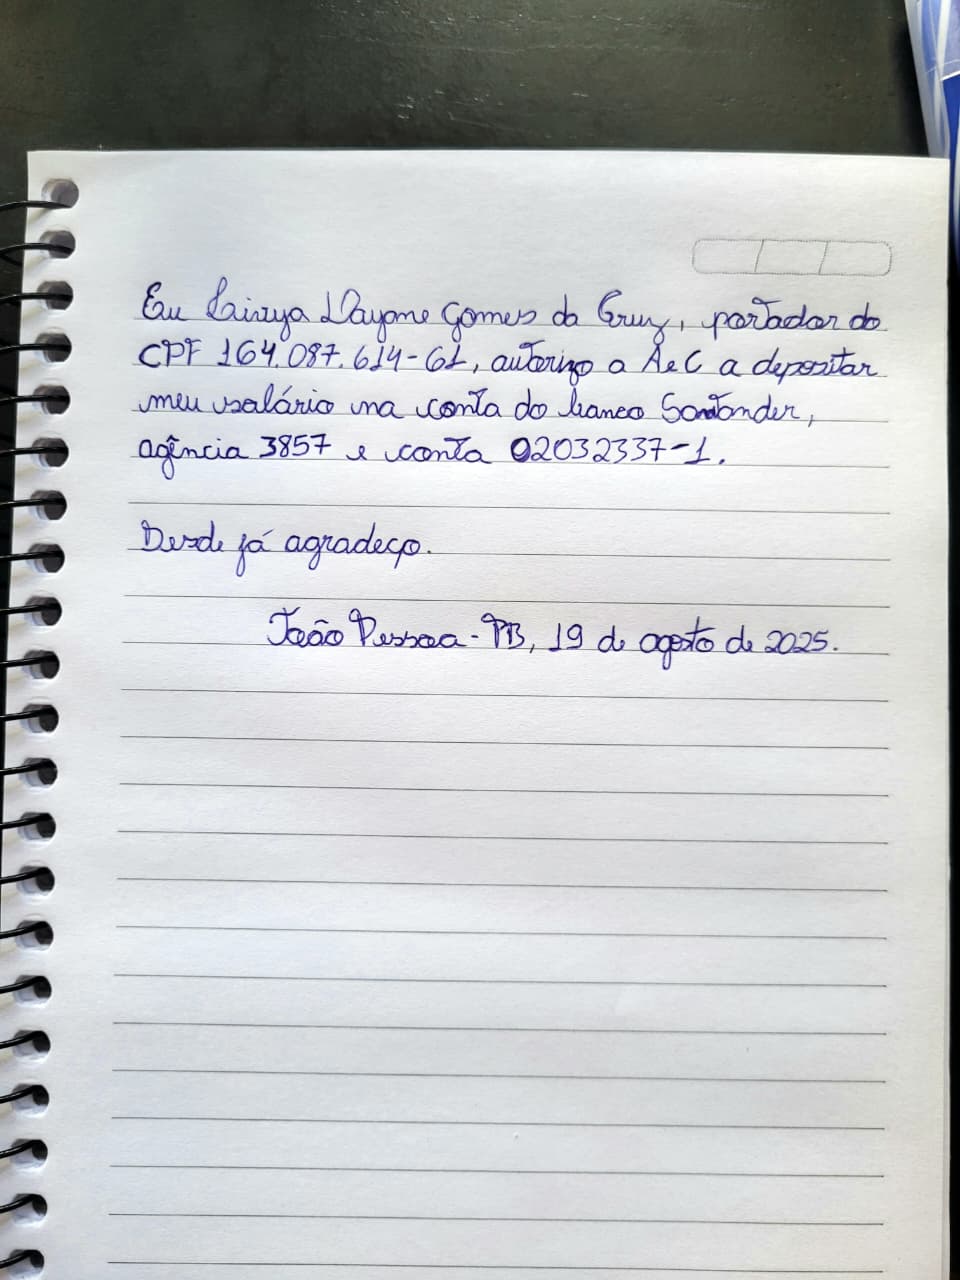 Eu Dayane Gomes da Cruz, portador do
CPF 164.087.614-61, autorizo a AeC a depositar
meu salário na conta do banco Santander,
agência 3857 e conta 02032337-1.
Desde já agradeço.
João Pessoa - PB, 19 de agosto de 2025.